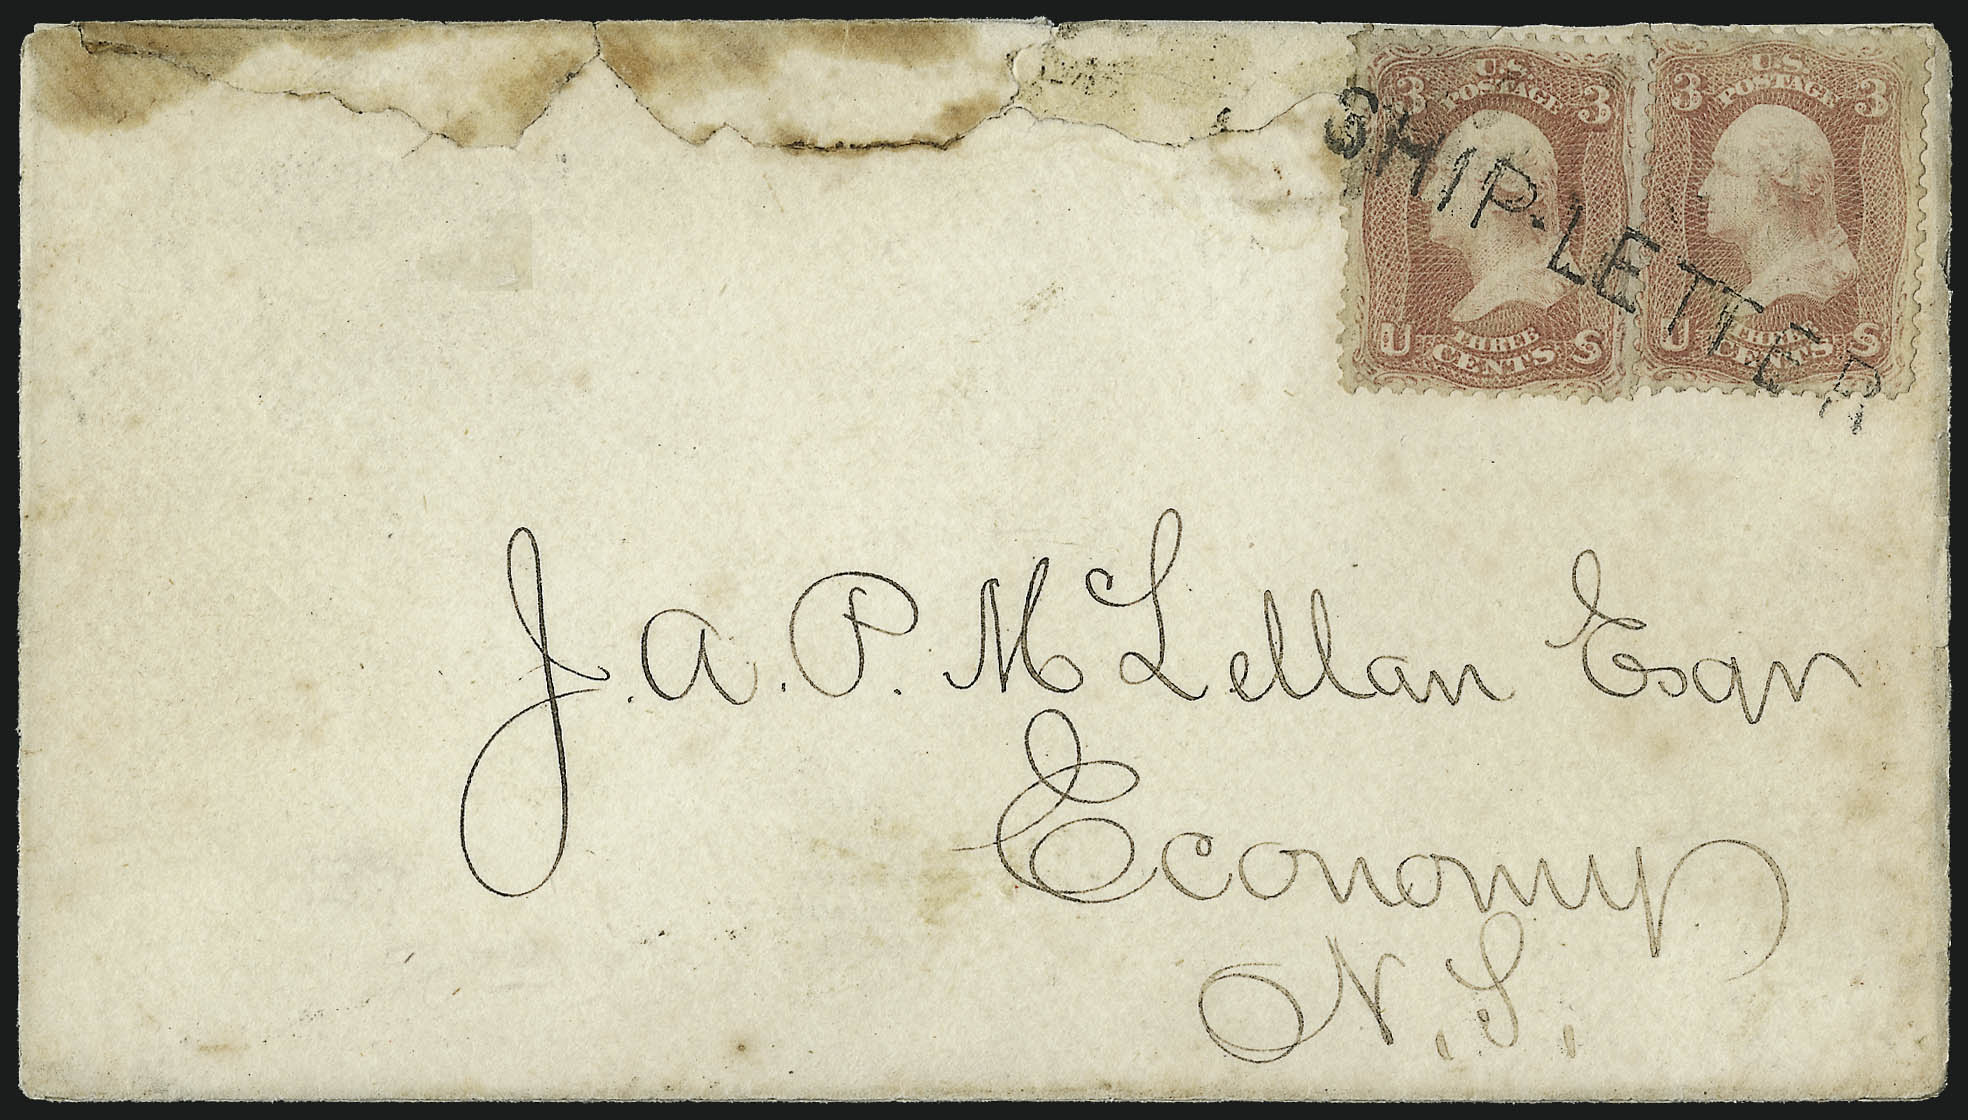 U.S. POSTAGE
3 3
THREE CENTS
U S
U.S. POSTAGE
3 3
THREE CENTS
U S
SHIP-LETTER
J. A. P. McLellan Esqr
Economy
N.S.